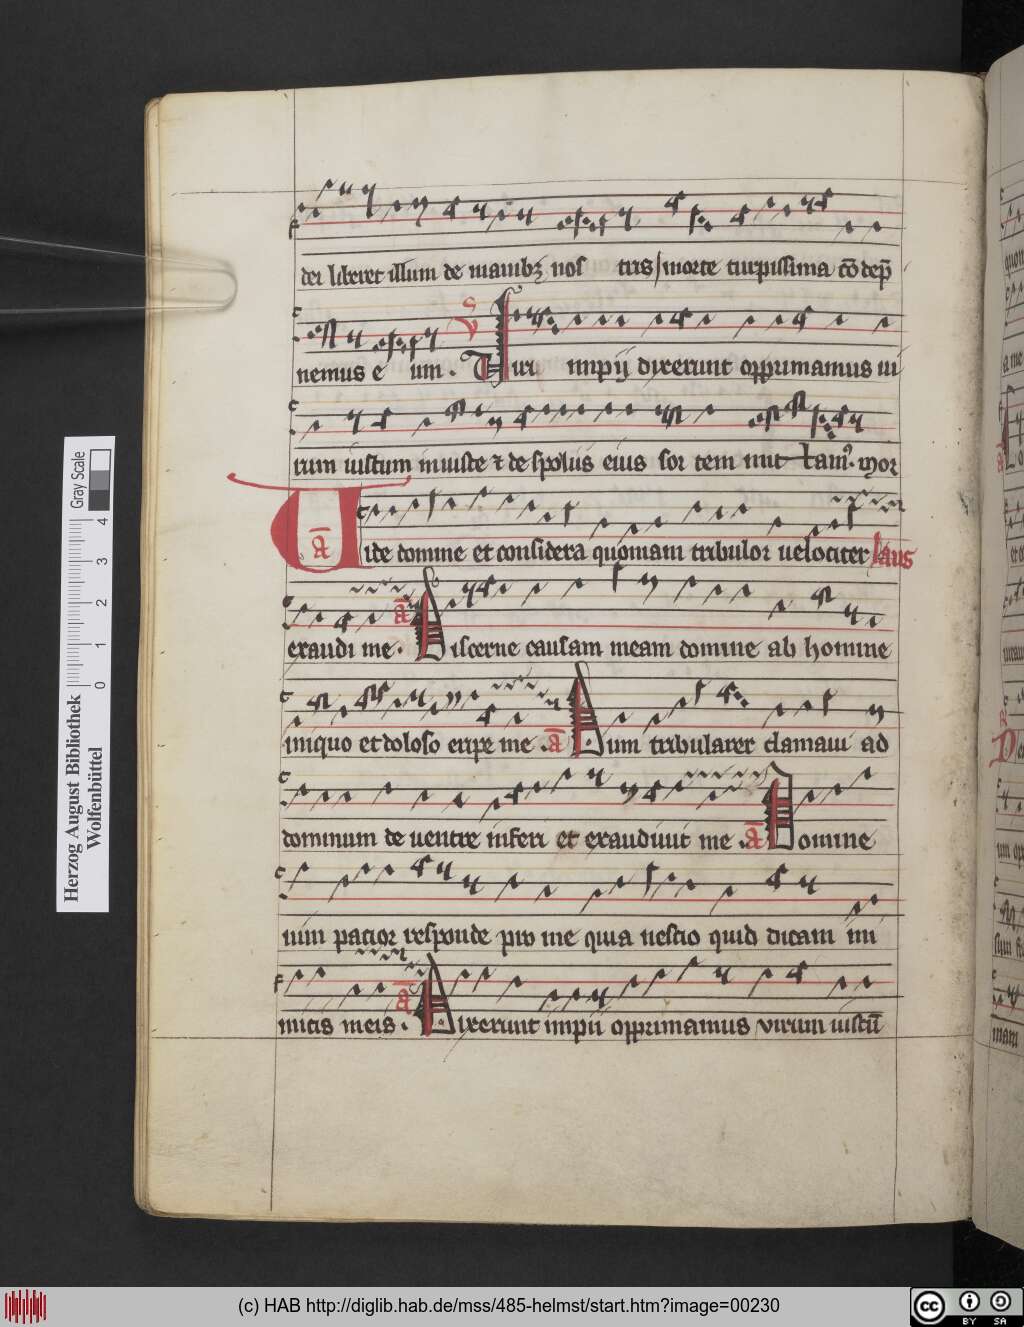 dei liberet illum de manibꝫ nos tris morte turpissima cō dep̄
nemus e um . V Viri impij dixerunt opprimamus ui
rum iustum iniuste ⁊ de spolus eius sor tem mit tam⁹. Mor
ā Vide domine et considera quoniam tribulor uelociter Laus
exaudi me . ā Discerne causam meam domine ab homine
iniquo et doloso eripe me . ā Dum tribularer clamaui ad
dominum de uentre inferi et exaudiuit me . ā Domine
uim patior responde pro me quia nescio quid dicam ini
micis meis . ā Dixerunt impii opprimamus virum iustū
Herzog August Bibliothek
Wolfenbüttel
Gray Scale
0 1 2 3 4
(c) HAB http://diglib.hab.de/mss/485-helmst/start.htm?image=00230
cc BY SA